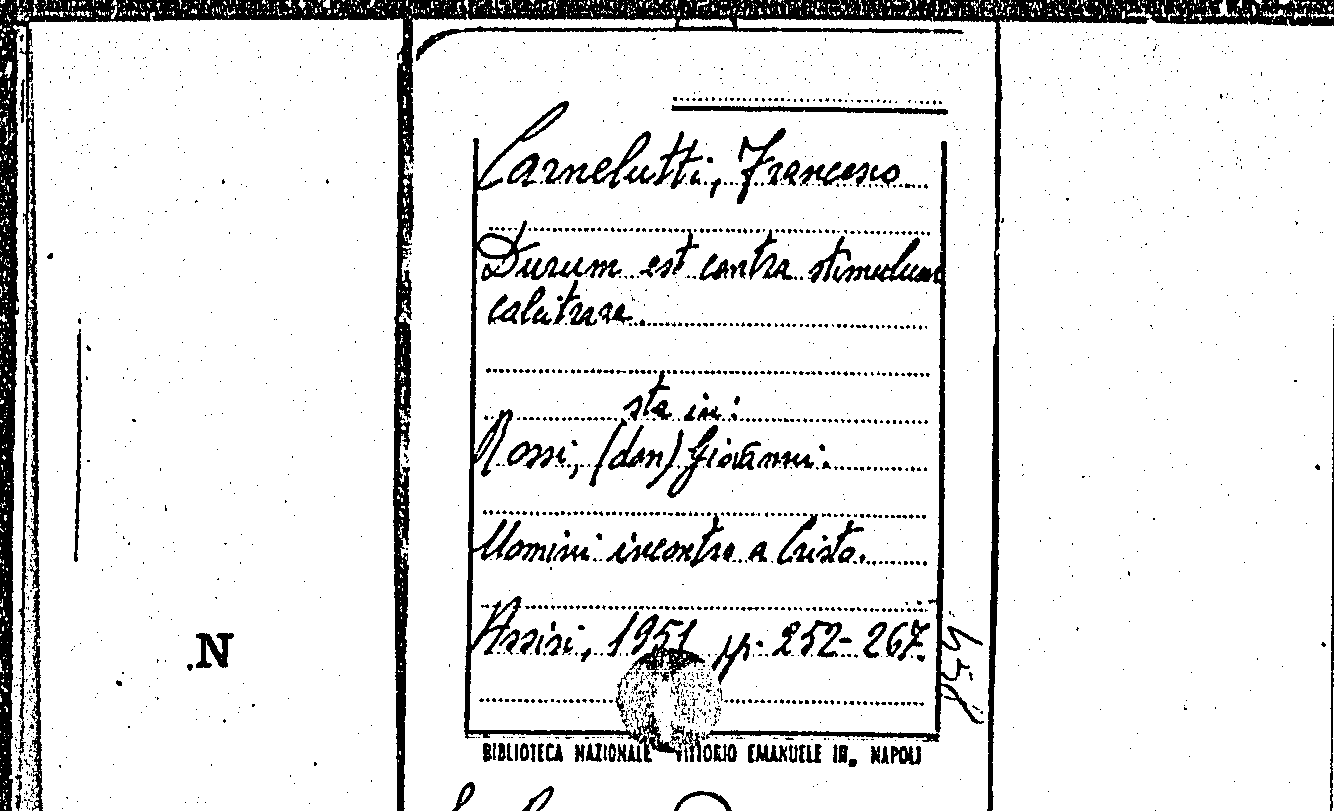 Carnelutti, Francesco
Durum est contra stimulum
calcitrare.
sta in:
Rossi, (don) Giovanni.
Uomini incontro a Cristo.
Assisi, 1951 pp. 252-267.
.N
BIBLIOTECA NAZIONALE VITTORIO EMANUELE III, NAPOLI